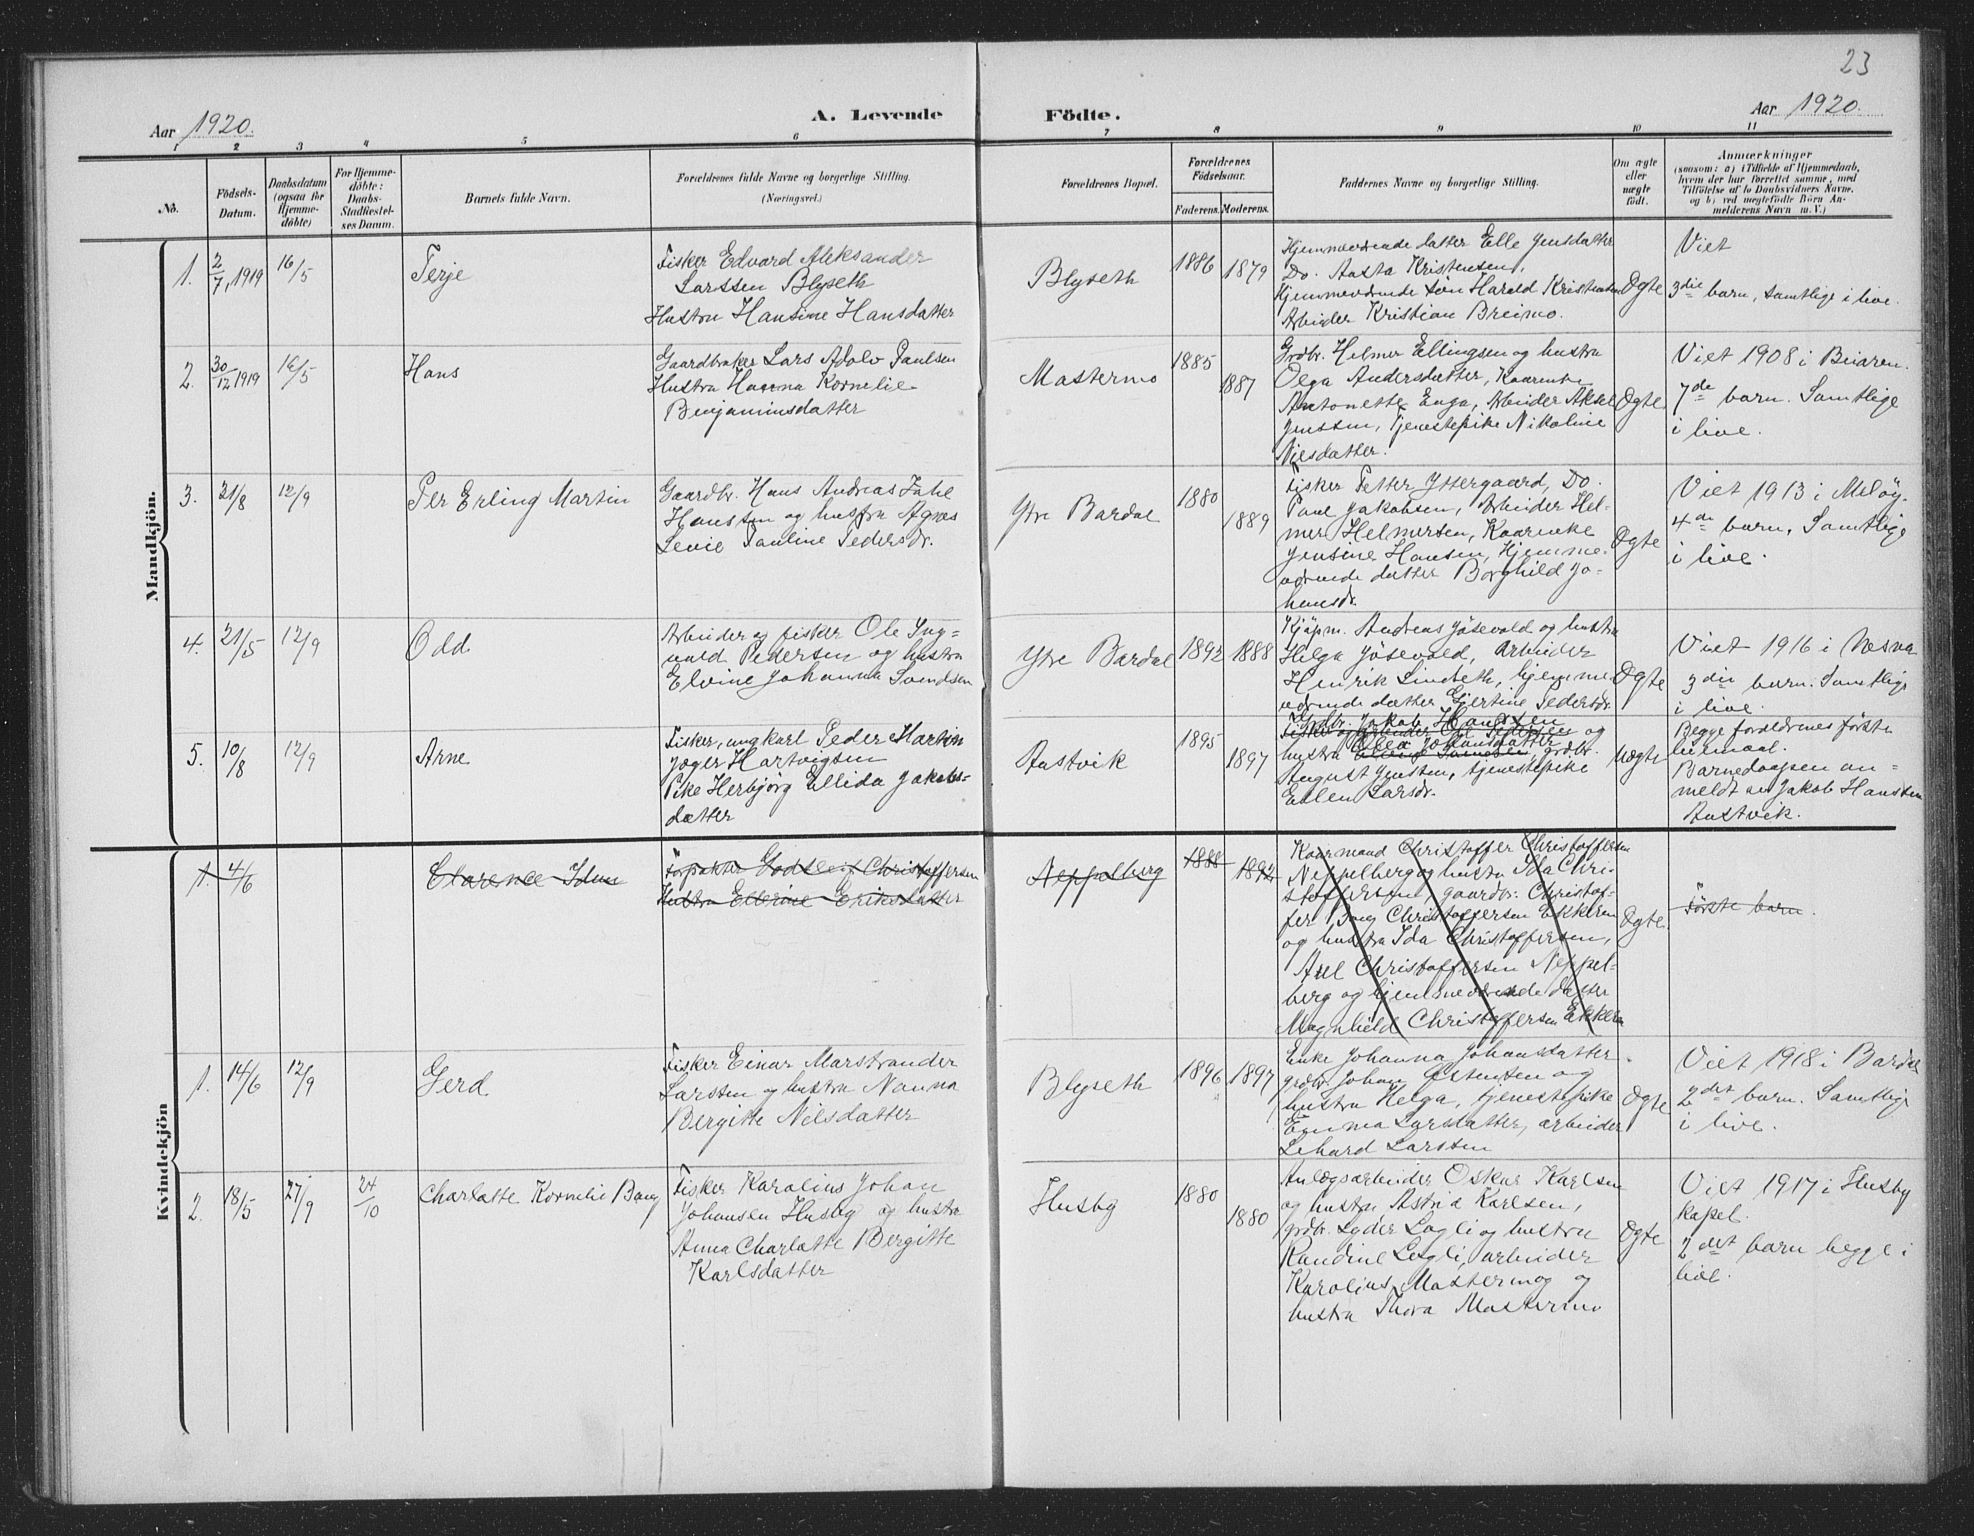 23
Aar 1920.
A. Levende
Födte.
Aar 1920.
1 2 3 4 5 6 7 8 9 10 11
No.
Födsels-
Datum.
Daabsdatum
(ogsaa for
Hjemme-
döbte)
For Hjemme-
döbte:
Daabs-
Stadfæstel-
ses Datum.
Barnets fulde Navn.
Forældrenes fulde Navne og borgerlige Stilling.
(Næringsvei.)
Forældrenes Bopæl.
Forældrenes
Födselsaar.
Faderens.
Moderens.
Faddernes Navne og borgerlige Stilling.
Om ægte
eller
uægte
födt.
Anmærkninger
(saasom: a) i Tilfælde af Hjemmedaab,
hvem der har forrettet samme, med
Tilföielse af to Daabsvidners Navne.
og b) ved uægtefödte Börn An-
melderens Navn m. V.)
Mandkjön.
1.
2/7, 1919
16/5
Terje
Fisker Edvard Aleksander
Larssen Blyseth
Hustru Hansine Hansdatter
Blyseth
1886
1879
Hjemmeværende datter Elle Jensdatter
Do. Aasta Kristensen,
Hjemmeværende søn Harald Kristensen
Arbeider Kristian Breimo.
Ægte
Viet
3die barn, samtlige i live.
2.
30/12 1919
16/5
Hans
Gaardbruker Lars Adolv Paulsen
Hustru Hanna Kornelie
Benjaminsdatter
Mastermo
1885
1887
Grdbr. Helmer Ellingsen og hustru
Olga Andersdatter, Kaarenke
Antonette Enga, Arbeider Aksel
Jenssen, Tjenestepike Nikoline
Nilsdatter.
Ægte
Viet 1908 i Beiaren.
7de barn. Samtlige
i live.
3.
21/8
12/9
Per Erling Martin
Gaardbr. Hans Andreas
Hanssen og hustru Agnes
Levie Pauline Pedersdr.
Ytre Bardal
1880
1889
Fisker Petter Yttergaard, Do.
Paul Jakobsen, Arbeider Hel-
mer Helmersen, Kaarenke
Jensine Hansen, Hjemme-
værende datter Borghild Jo-
hansdr.
Ægte
Viet 1913 i Meløy.
4de barn, Samtlige
i live.
4.
21/5
12/9
Odd
Arbeider og fisker Ole Ing-
vald Pedersen og hustru
Elvine Johanna Svendsen
Ytre Bardal
1892
1888
Kjøpm. Andreas Jøsevold og hustru
Helga Jøsevold, Arbeider
Henrik Lindseth, hjemme-
værende datter Gjertine Pedersdr.
Ægte
Viet 1916 i Nesna
3die barn. Samtlige
i live.
5.
10/8
12/9
Arne
Fisker, ungkarl Peder Martin
Jæger Hartvigsen
Pike Herbjørg Ellida Jakobs-
datter
Austvik
1895
1897
Grdbr. Jakob Hanssen
Fisker og arbeider Ole Pedersen og
Johansdatter
hustru Elvine Svendsen, grdbr.
August Jenssen, tjenestepike
Ellen Larsdr.
Uægte
Begge foreldrenes første
leiermaal.
Barnedaapen an-
meldt av Jakob Hanssen
Austvik.
Kvindekjön
1.
4/6
Clarence Idun
Forpakter Godtlenf Christoffersen
Hustru Ellerine Eriksdatter
Neppelberg
1888
1892
Kaarmand Christoffer Christoffersen
Neppelberg og hustru Ida Chri-
stoffersen, gaardbr. Christof-
fer Christoffersen Ekkeren
og hustru Ida Christoffersen,
Axel Christoffersen Neppel-
berg og hjemmeværende datter
Magnhild Christoffersen Ekkeren
Ægte
Første barn.
1.
14/6
12/9
Gerd
Fisker Einar Marstrander
Larssen og hustru Nanna
Bergitte Nilsdatter
Blyseth
1896
1897
Enke Johanna Johansdatter
grdbr. Johan Østensen og
hustru Helga, tjenestepike
Emma Larsdatter, arbeider
Lehard Larssen
Ægte
Viet 1918 i Bardal
2det barn. Samtlige
i live.
2.
18/5
27/9
24/10
Charlatte Kornelie Bang
Fisker Karolius Johan
Johansen Husby og hustru
Anna Charlatte Bergitte
Karlsdatter
Husby
1880
1880
Anlægsarbeider Oskar Karlsen
og hustru Astrid Karlsen,
grdbr. Lyder Lagli og hustru
Randine Lagli, arbeider
Karolius Mastermo og
hustru Thora Mastermo
Ægte
Viet 1917 i Husby
kapel.
2det barn begge i
live.